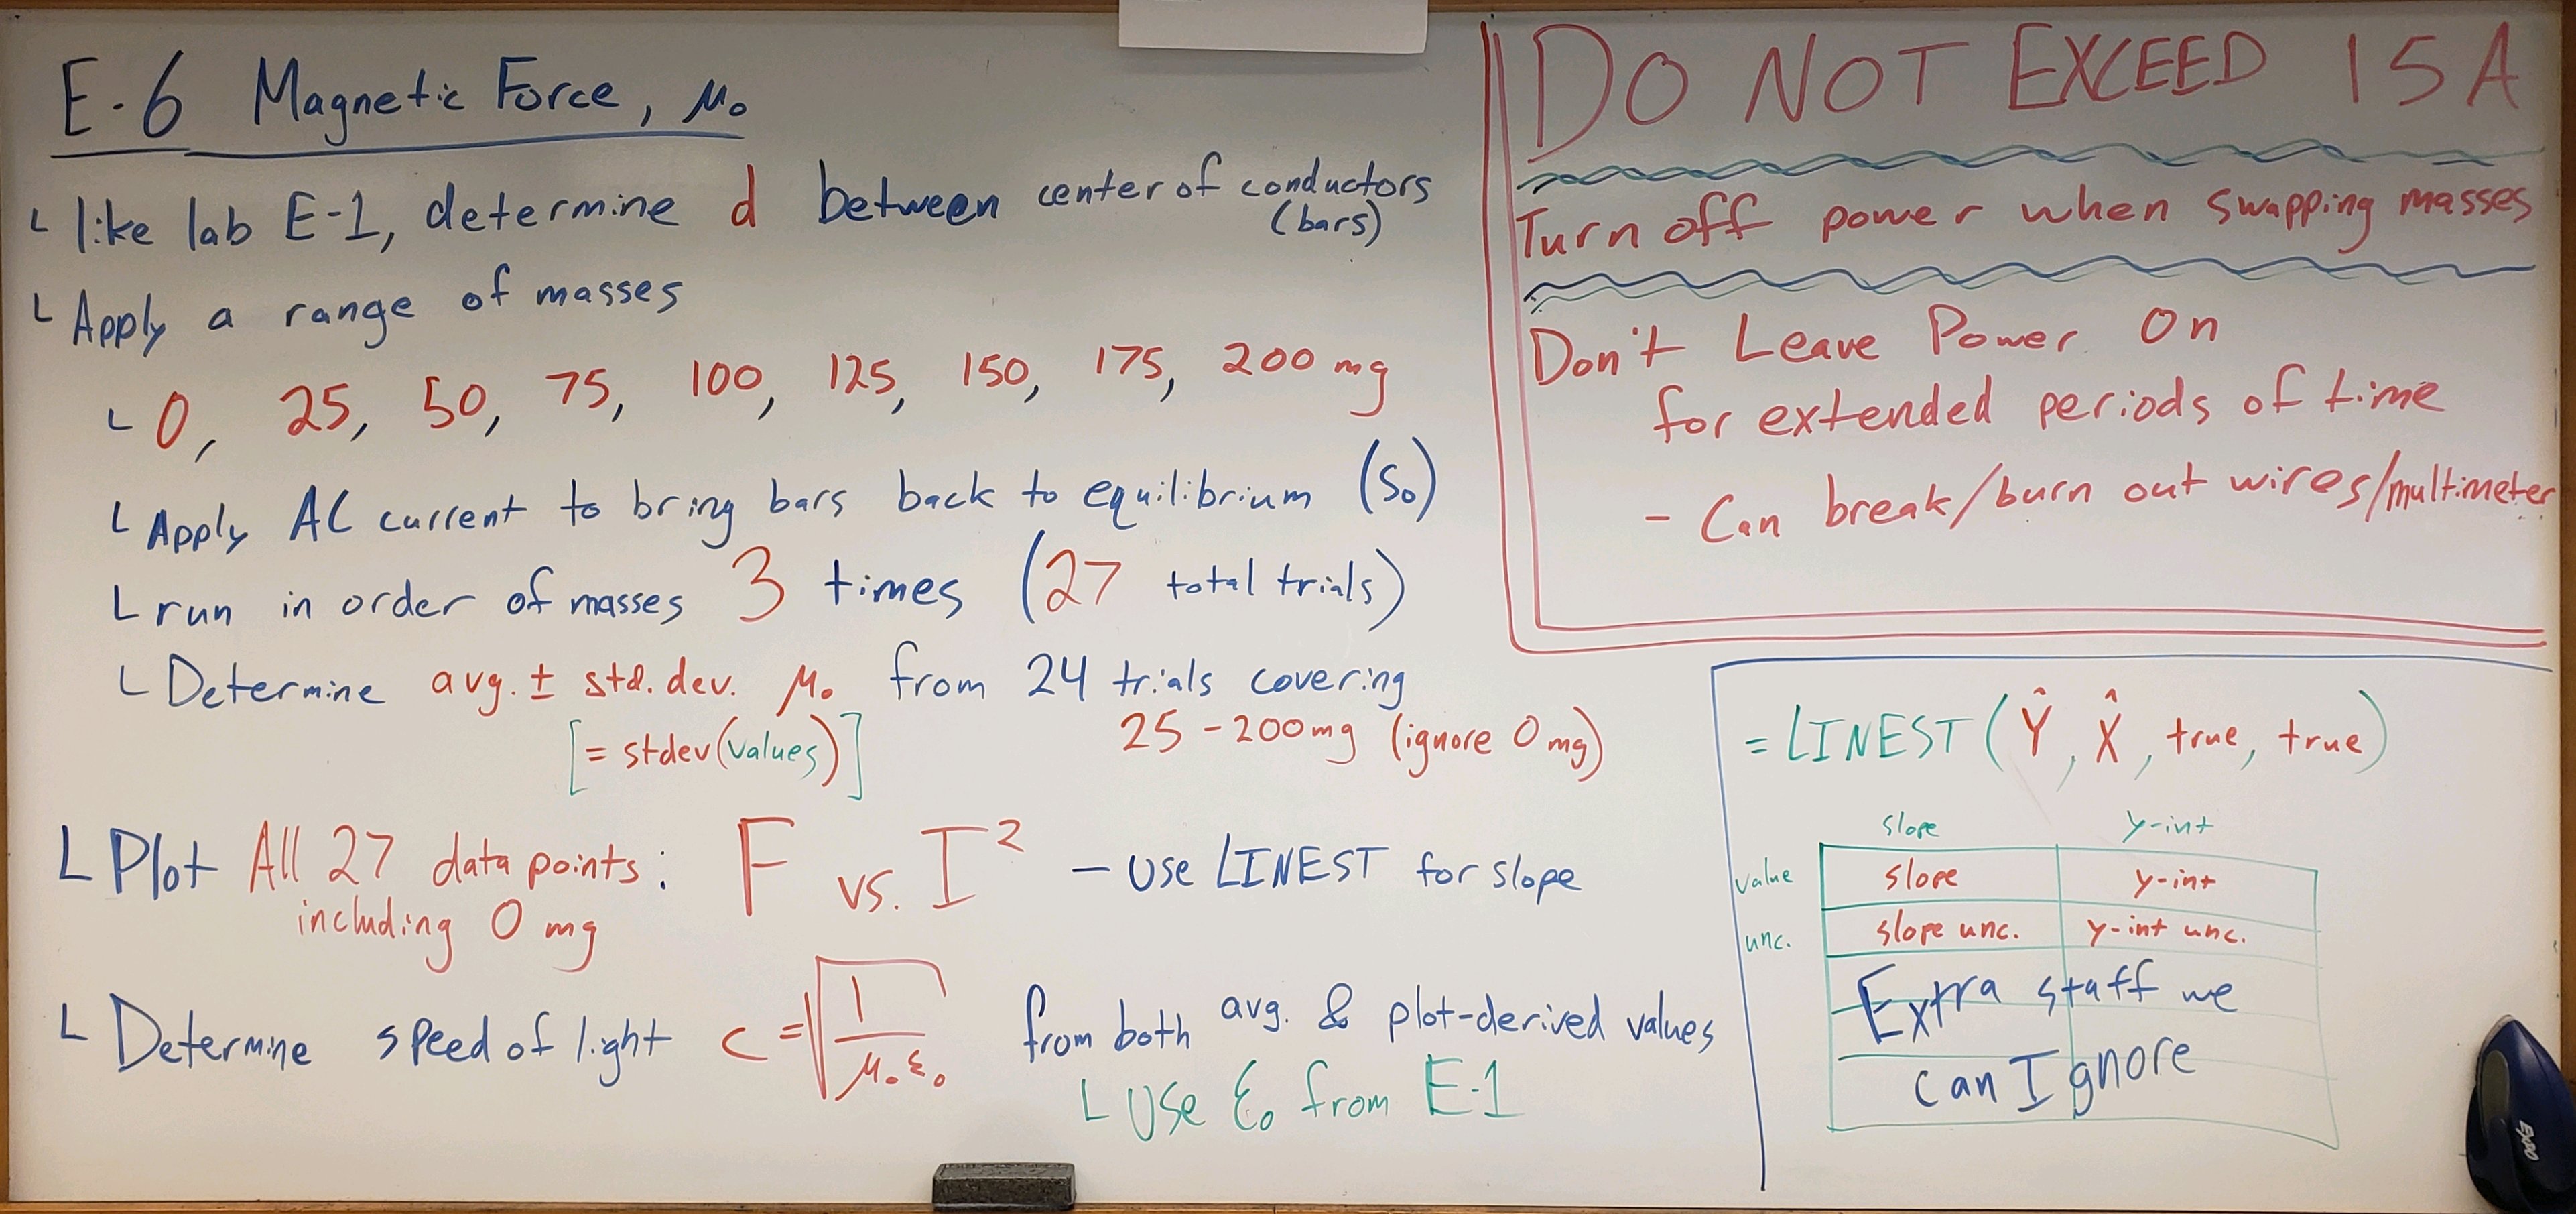 E-6 Magnetic Force, μ₀
└ like lab E-1, determine d between center of conductors
(bars)
└ Apply a range of masses
└ 0, 25, 50, 75, 100, 125, 150, 175, 200 mg
└ Apply AC current to bring bars back to equilibrium (S₀)
└ run in order of masses 3 times (27 total trials)
└ Determine avg. ± std. dev. μ₀ from 24 trials covering
[= stdev(values)] 25 - 200mg (ignore 0 mg)
└ Plot All 27 data points: F vs. I² - Use LINEST for slope
including 0 mg
└ Determine speed of light c = √(1/μ₀ε₀) from both avg. & plot-derived values
└ Use ε₀ from E-1
DO NOT EXCEED 15A
Turn off power when swapping masses
Don't Leave Power On
for extended periods of time
- Can break/burn out wires/multimeter
= LINEST(Ŷ, X̂, true, true)
slope y-int
value slope y-int
unc. slope unc. y-int unc.
Extra stuff we
can Ignore
EXPO